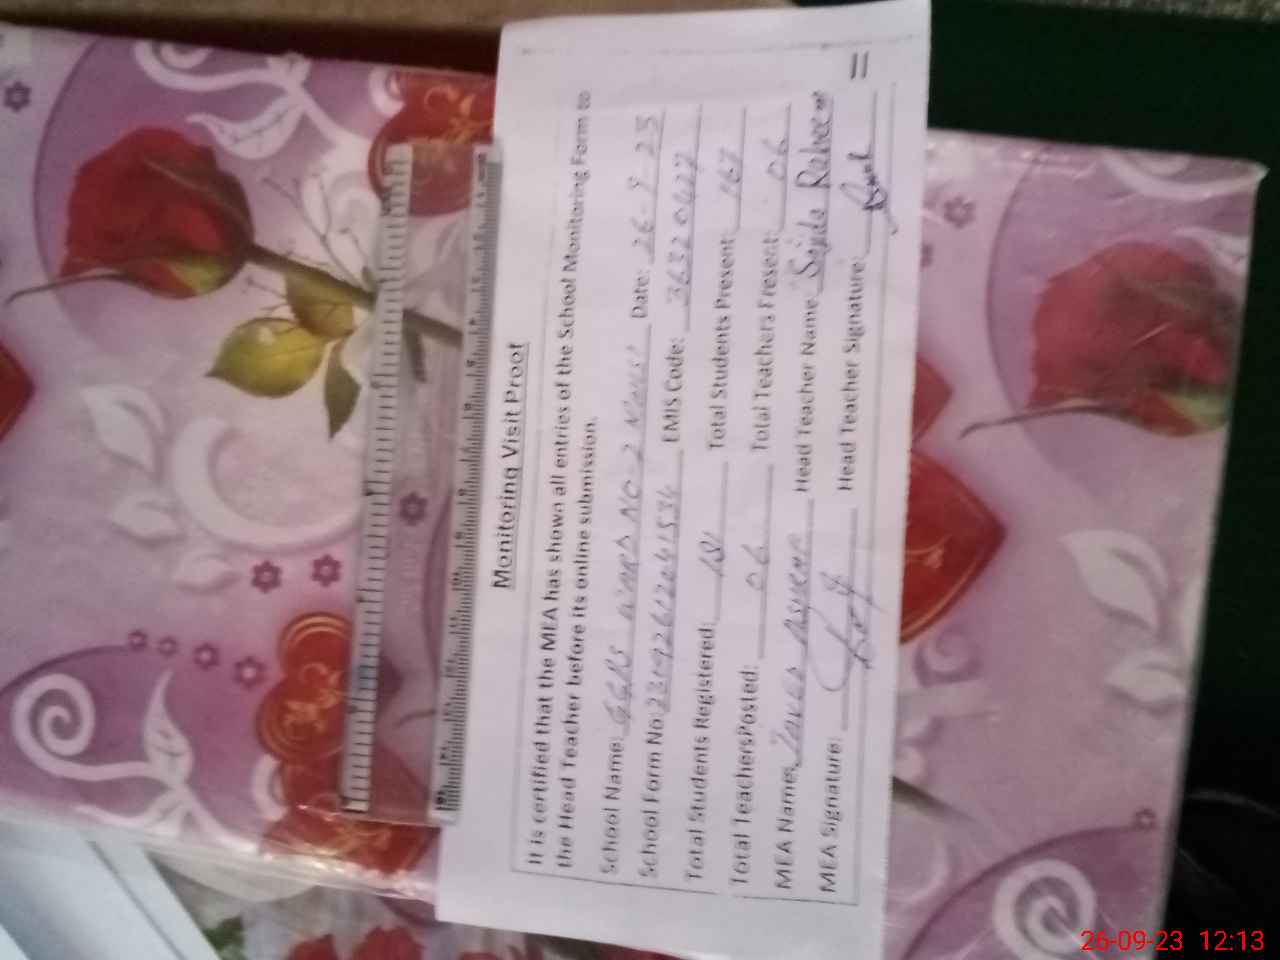 Monitoring Visit Proof
It is certified that the MEA has shown all entries of the School Monitoring Form to
the Head Teacher before its online submission.
School Name: GGPS NO-2 Date: 26-9-23
School Form No: EMIS Code: 36320427
Total Students Registered: 181 Total Students Present: 167
Total TeachersPosted: 06 Total Teachers Present: 06
MEA Name: Head Teacher Name: Sajda Rabee
MEA Signature: Head Teacher Signature:
26-09-23 12:13